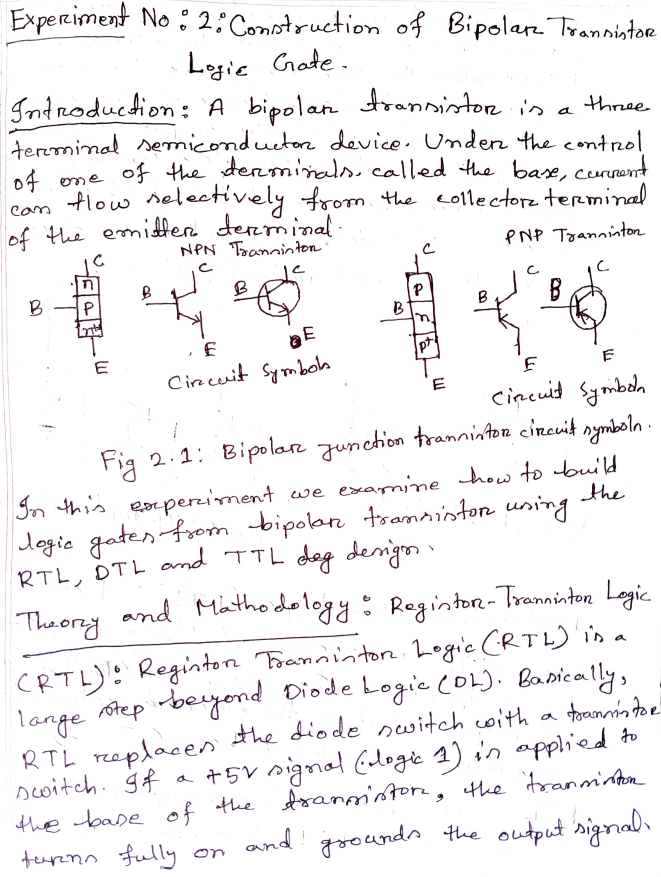 Experiment No : 2 : Construction of Bipolar Transistor
Logic Gate.
Introduction : A bipolar transistor is a three
terminal semiconductor device. Under the control
of one of the terminals, called the base, current
can flow selectively from the collector terminal
of the emitter terminal.
NPN Transistor
PNP Transistor
C
n
B
P
n+
E
C
B
E
C
B
E
Circuit Symbols
C
P
B
n
p+
E
C
B
E
C
B
E
Circuit Symbols
Fig 2.1: Bipolar junction transistor circuit symbols.
In this experiment we examine how to build
logic gates from bipolar transistor using the
RTL, DTL and TTL deg design.
Theory and Mathodology : Registor-Transistor Logic
(RTL) : Registor Transistor Logic (RTL) is a
large step beyond Diode Logic (DL). Basically,
RTL replaces the diode switch with a transistor
switch. If a +5V signal (logic 1) is applied to
the base of the transistor, the transistor
turns fully on and grounds the output signal.